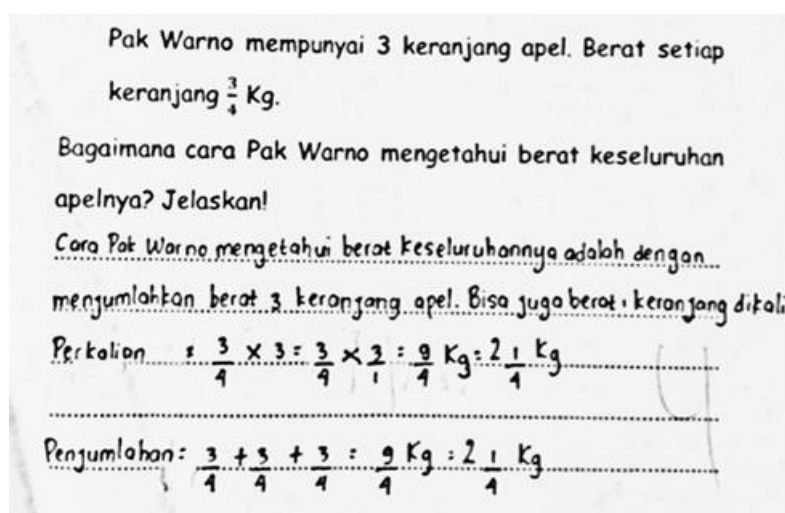 Pak Warno mempunyai 3 keranjang apel. Berat setiap
keranjang 3/4 Kg.
Bagaimana cara Pak Warno mengetahui berat keseluruhan
apelnya? Jelaskan!
Cara Pak Warno mengetahui berat keseluruhannya adalah dengan
menjumlahkan berat 3 keranjang apel. Bisa juga berat 1 keranjang dikali
Perkalian : 3/4 × 3 = 3/4 × 3/1 = 9/4 Kg = 2 1/4 Kg
Penjumlahan : 3/4 + 3/4 + 3/4 = 9/4 Kg = 2 1/4 Kg